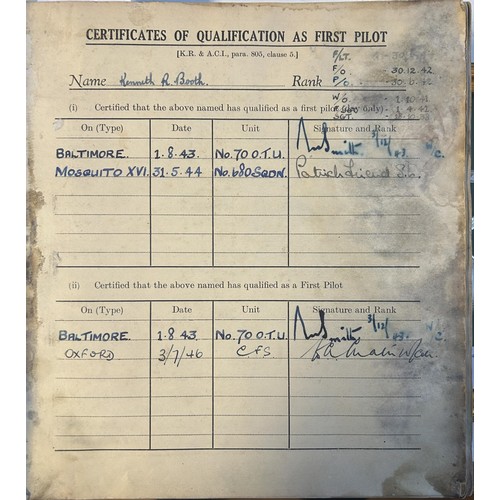 CERTIFICATES OF QUALIFICATION AS FIRST PILOT
[K.R. & A.C.I., para. 805, clause 5.]
F/LT.
F/O. - 30.12.42
Name Kenneth R. Booth Rank P/O.
W/O.
SGT.
(i) Certified that the above named has qualified as a first pilot (day only).
On (Type) Date Unit Signature and Rank
BALTIMORE. 1.8.43. No.70 O.T.U. Smith 3/12/43 W/C.
MOSQUITO XVI. 31.5.44 No.680 SQDN. Patrick
(ii) Certified that the above named has qualified as a First Pilot
On (Type) Date Unit Signature and Rank
BALTIMORE. 1.8.43. No.70 O.T.U. Smith 3/12/43 W/C.
OXFORD 3/7/46 CFS